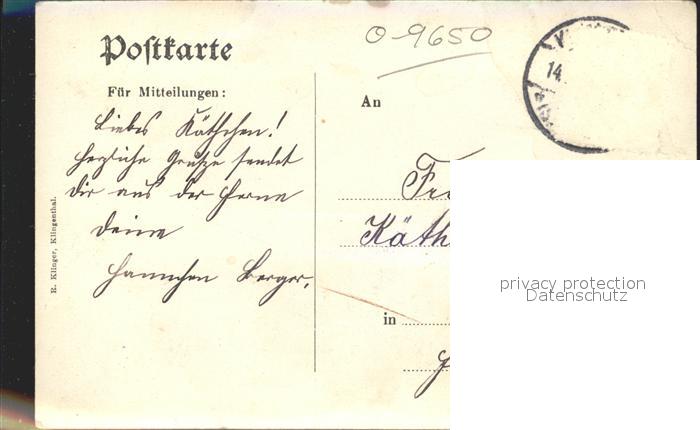 Postkarte
O-9650
14
Für Mitteilungen:
An
Liebes Käthchen!
Herzliche Grüße sendet
Dir aus der Ferne
Deine
Hannchen Berger.
Käth
in
R. Klinger, Klingenthal.
privacy protection
Datenschutz